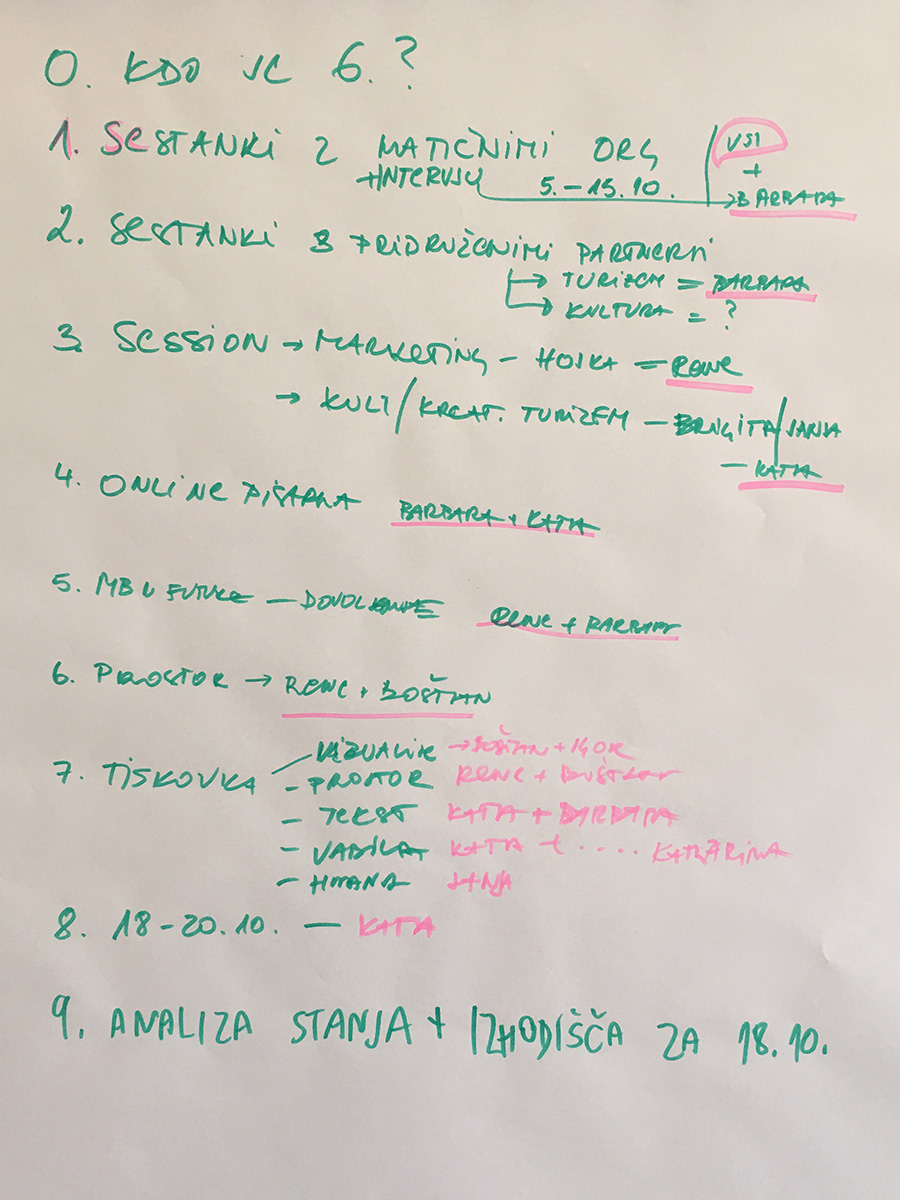 0. KDO JE 6.?
1. SESTANKI Z MATIČNIMI ORG VSI
+INTERVJU 5.–15.10. + → BARBARA
2. SESTANKI S PRIDRUŽENIMI PARTNERJI
→ TURIZEM = BARBARA
→ KULTURA = ?
3. SESSION → MARKETING – HOJKA = RENE
→ KULT/KREAT. TURIZEM – BRIGITA/JANJA
– KATJA
4. ONLINE PISARNA BARBARA + KATJA
5. MB V FUTURE – DOVOLJENJE RENE + BARBARA
6. PROSTOR → RENE + BOŠTJAN
7. TISKOVKA VIZUALIJE → BOŠTJAN + IGOR
– PROSTOR RENE + BOŠTJAN
– TEKST KATJA + BARBARA
– VABILA KATJA + .... KATARINA
– HRANA JANJA
8. 18–20.10. – KATJA
9. ANALIZA STANJA + IZHODIŠČA ZA 18.10.